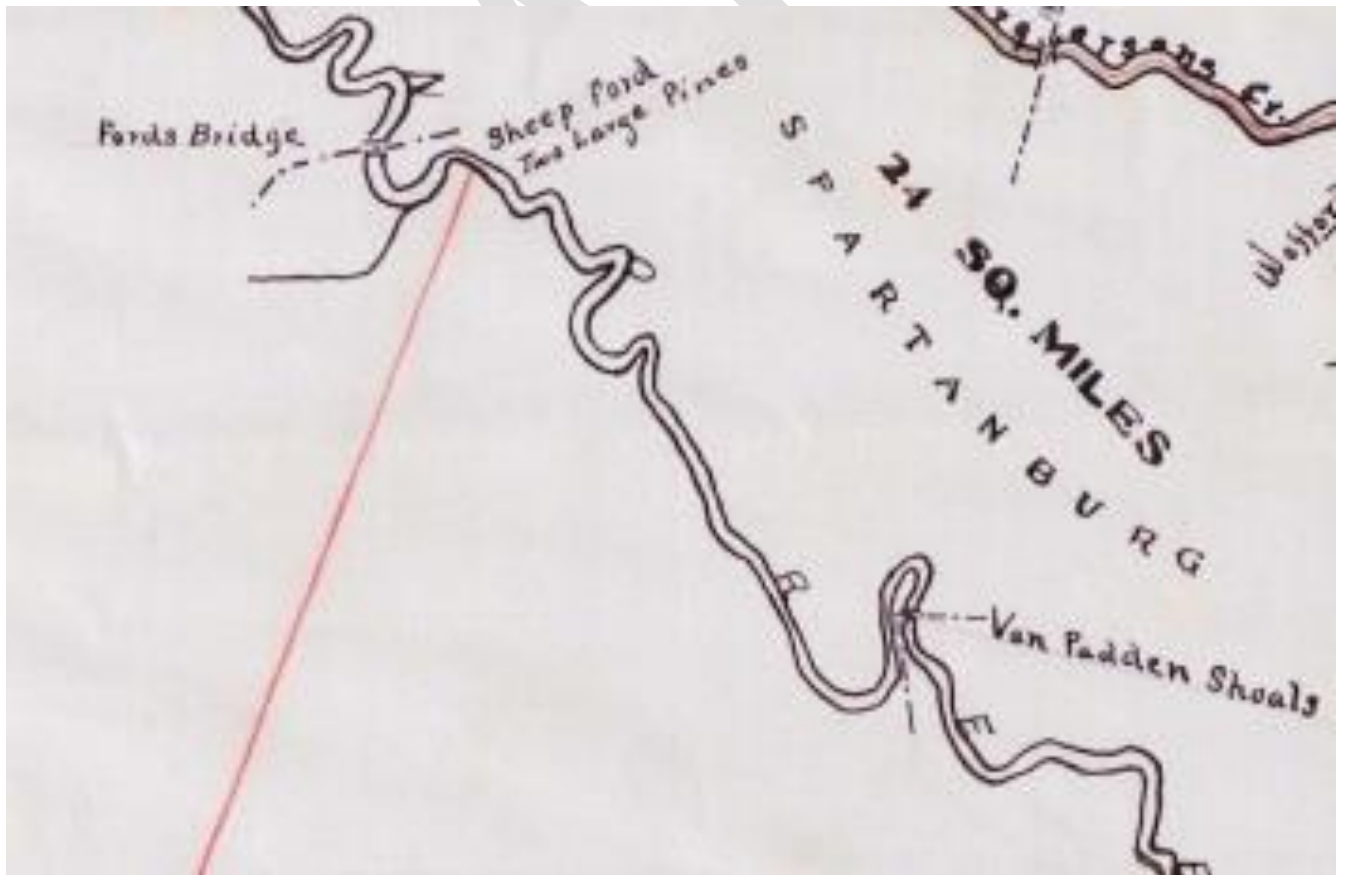 Fords Bridge
Sheep Ford
Two Large Pines
Cr.
24 SQ. MILES
SPARTANBURG
Van Padden Shoals